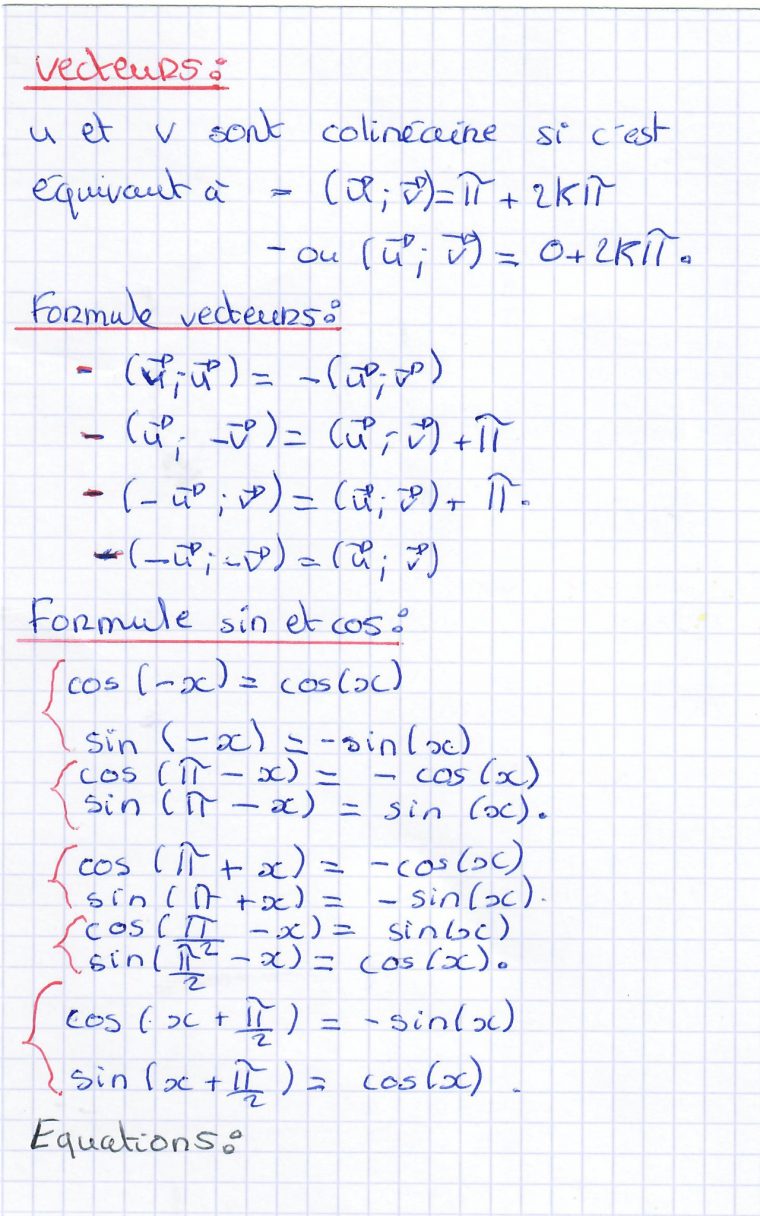 vecteurs :
u et v sont colinéaire si c'est
équivaut à - (u⃗ ; v⃗) = π + 2kπ
- ou (u⃗ ; v⃗) = 0 + 2kπ.
Formule vecteurs :
- (v⃗ ; u⃗) = -(u⃗ ; v⃗)
- (u⃗ ; -v⃗) = (u⃗ ; v⃗) + π
- (-u⃗ ; v⃗) = (u⃗ ; v⃗) + π.
- (-u⃗ ; -v⃗) = (u⃗ ; v⃗)
Formule sin et cos :
cos (-x) = cos(x)
sin (-x) = -sin(x)
cos (π - x) = - cos (x)
sin (π - x) = sin (x).
cos (π + x) = -cos(x)
sin (π + x) = - sin(x).
cos(π/2 - x) = sin(x)
sin(π/2 - x) = cos(x).
cos (x + π/2) = -sin(x)
sin (x + π/2) = cos(x).
Equations :